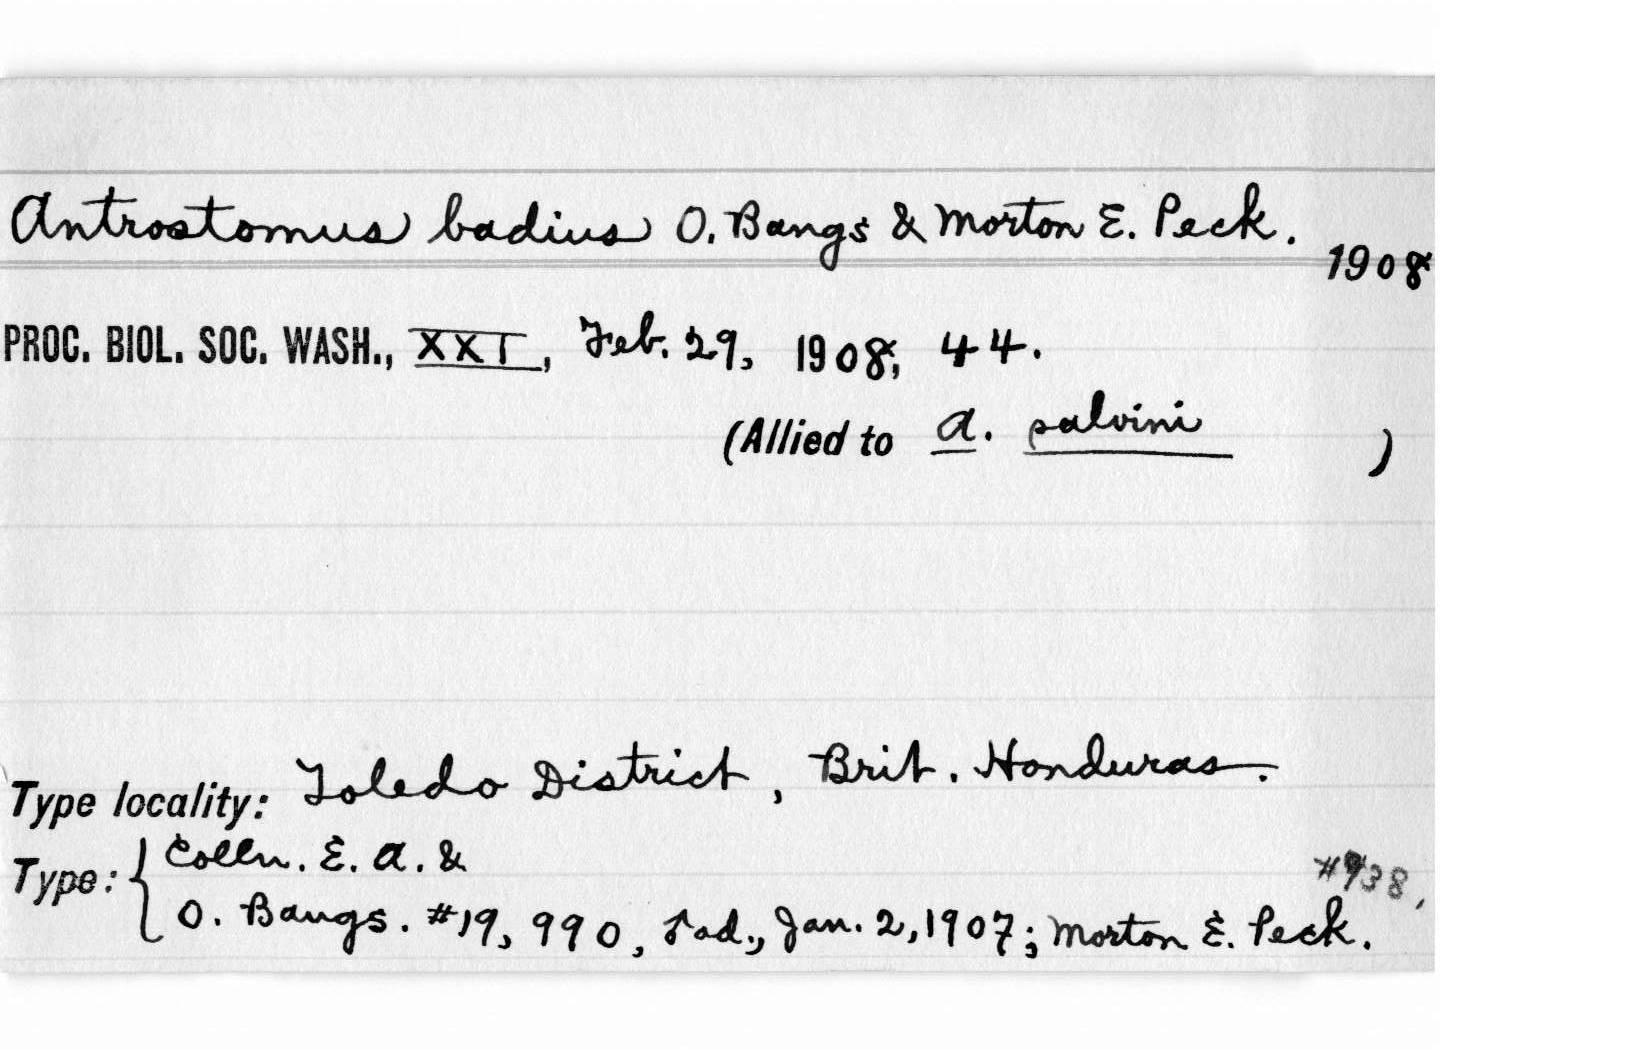 Antrostomus badius O. Bangs & Morton E. Peck.
1908
PROC. BIOL. SOC. WASH., XXI, Feb. 29, 1908, 44.
(Allied to A. salvini )
Type locality: Toledo District, Brit. Honduras.
Type: { Colln. E. A. &
#938,
O. Bangs. #19,990, ♂ad., Jan. 2, 1907; Morton E. Peck.